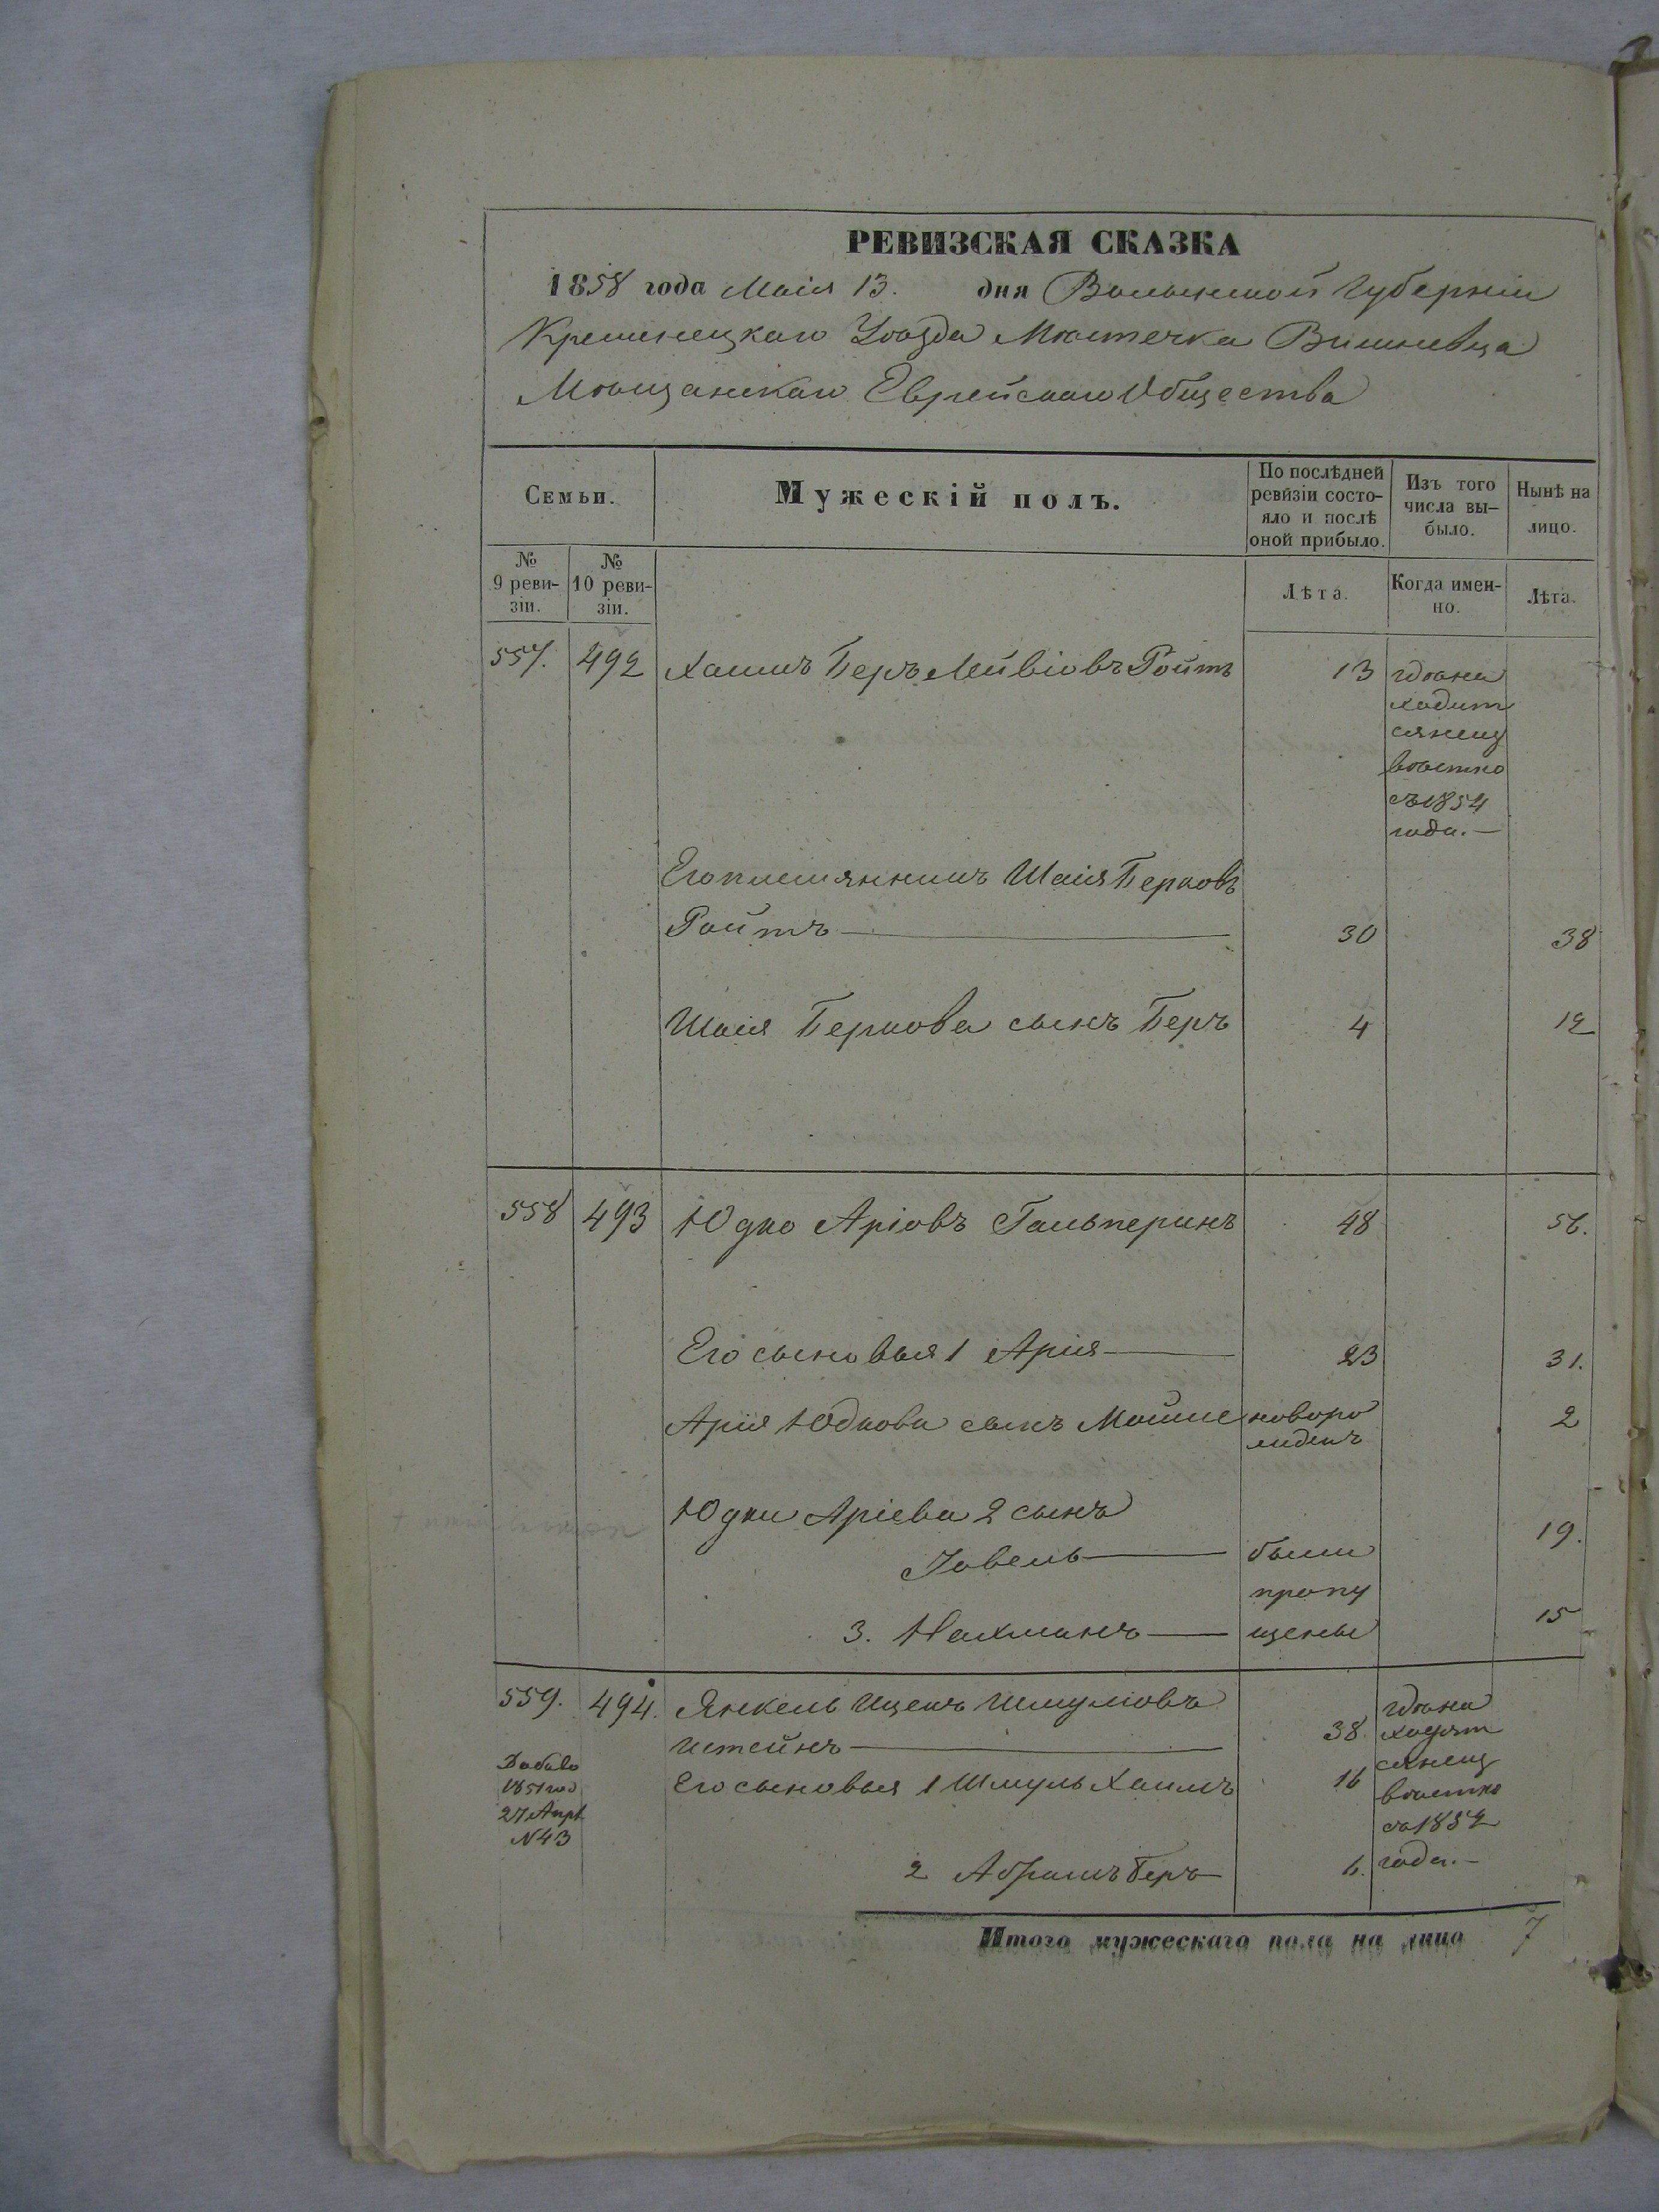 РЕВИЗСКАЯ СКАЗКА
1858 года Маія 13. дня Волынской Губерніи
Кременецкаго Уѣзда Мѣстечка Вишневца
Мѣщанскаго Еврейскаго Общества
Семьи.
Мужескій полъ.
По послѣдней
ревизіи состо-
яло и послѣ
оной прибыло.
Изъ того
числа вы-
было.
Нынѣ на
лицо.
№
9 реви-
зіи.
№
10 реви-
зіи.
Лѣта.
Когда имен-
но.
Лѣта.
557. 492 Хаимъ Беръ Лейвіовъ Ройтъ 13 гдѣ на
ходит
ся неиз
вѣстно
съ 1854
года.—
Его племянникъ Шаія Берковъ
Ройтъ — 30 38
Шаія Беркова сынъ Беръ 4 12
558 493 Юдко Аріовъ Гальперинъ 48 56.
Его сыновья 1 Арія — 23 31.
Арія Юдкова сынъ Мойше новоро 2
жденъ
Юдки Аріева 2 сынъ
Іовель — были 19.
пропу
3. Нахманъ — щены 15
559. 494. Янкель Ицекъ Шмуліовъ гдѣ на
Штейнъ — 38. ходят
ся неиз
Его сыновья 1 Шмуль Хаимъ 16 вѣстно
съ 1852
2 Абрамъ Беръ 6. года.—
1851 год
27 Апрѣ
N 43
Итого мужескаго пола на лицо 7